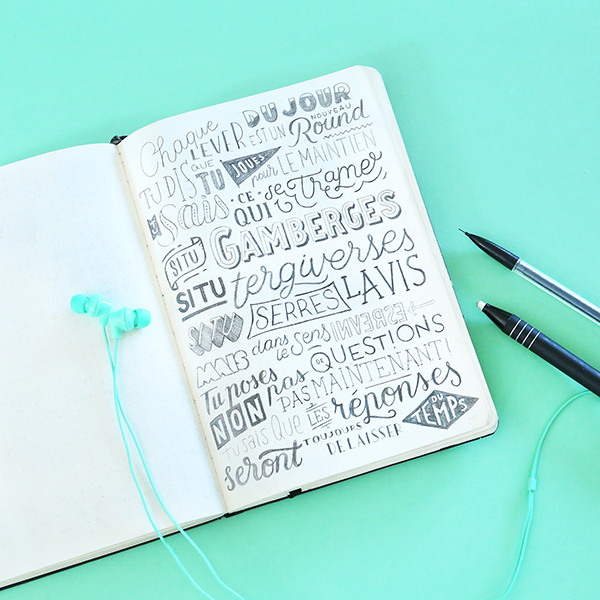 Chaque LEVER DU JOUR EST UN NOUVEAU Round
TU DIS QUE TU JOUES pour LE MAINTIEN
TU Sais CE QUI se trame,
SITU GAMBERGES
SITU tergiverses
SITU SERRES LAVIS
MAIS dans le Sens INVERSE
Tu poses pas DE QUESTIONS
NON PAS MAINTENANT!
tu sais Que LES réponses
seront TOUJOURS DE LAISSER DU TEMPS